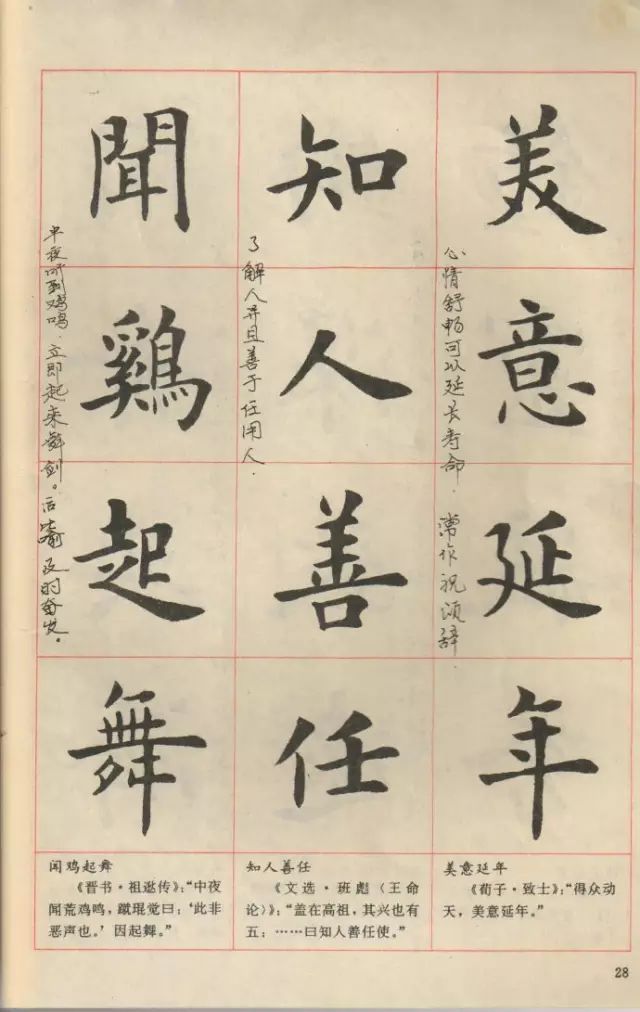 美意延年
心情舒畅可以延长寿命．常作祝颂辞．
知人善任
了解人并且善于任用人．
聞鷄起舞
中夜听到鸡鸣．立即起来舞剑。后比喻及时奋发。
闻鸡起舞
《晋书·祖逖传》：“中夜
闻荒鸡鸣，蹴琨觉曰：‘此非
恶声也。’因起舞。”
知人善任
《文选·班彪（王命
论）》：“盖在高祖，其兴也有
五：……曰知人善任使。”
美意延年
《荀子·致士》：“得众动
天，美意延年。”
28